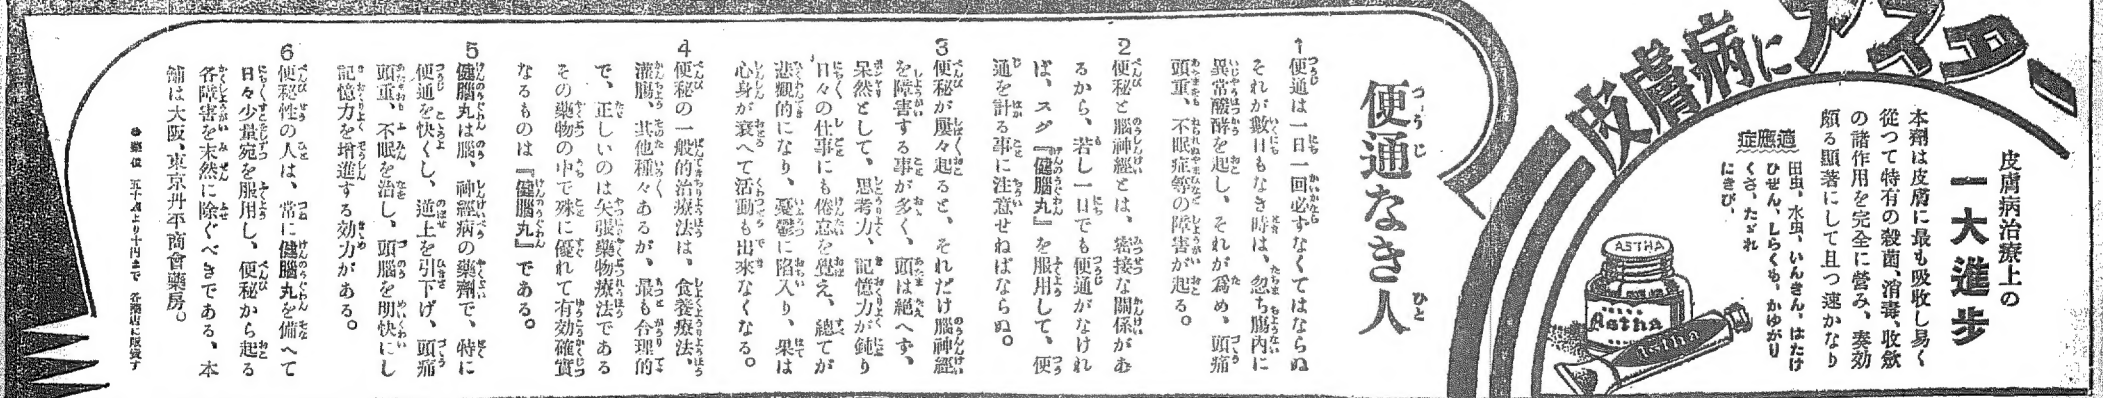 皮膚病にアスター
皮膚病治療上の
一大進歩
本劑は皮膚に最も吸收し易く
從つて特有の殺菌、消毒、收斂
の諸作用を完全に營み、奏効
頗る顯著にして且つ速かなり
適應症
田虫、水虫、いんきん、はたけ
ひぜん、しらくも、かゆがり
くさ、たゞれ
にきび、
ASTHA
Astha
Astha
便通なき人
1 便通は一日一回必ずなくてはならぬ
それが數日もなき時は、忽ち腸内に
異常醱酵を起し、それが爲め、頭痛
頭重、不眠症等の障害が起る。
2 便秘と腦神經とは、密接な關係があ
るから、若し一日でも便通がなけれ
ば、スグ『健腦丸』を服用して、便
通を計る事に注意せねばならぬ。
3 便秘が屢々起ると、それだけ腦神經
を障害する事が多く、頭は絶へず、
呆然として、思考力、記憶力が鈍り
日々の仕事にも倦怠を覺え、總てが
悲觀的になり、憂鬱に陷入り、果は
心身が衰へて活動も出來なくなる。
4 便秘の一般的治療法は、食養療法、
灌腸、其他種々あるが、最も合理的
で、正しいのは矢張藥物療法である
その藥物の中で殊に優れて有効確實
なるものは『健腦丸』である。
5 健腦丸は腦、神經病の藥劑で、特に
便通を快くし、逆上を引下げ、頭痛
頭重、不眠を治し、頭腦を明快にし
記憶力を增進する効力がある。
6 便秘性の人は、常に健腦丸を備へて
日々少量宛を服用し、便秘から起る
各障害を未然に除ぐべきである、本
舗は大阪、東京丹平商會藥房。
藥價 五十錢より十円まで 各藥店に販賣す